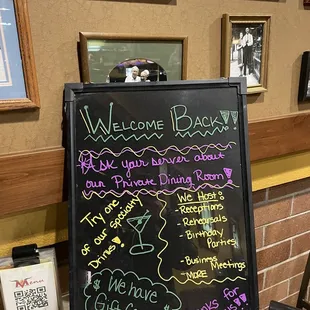 Welcome Back!!
Ask your server about
our Private Dining Room!
Try one
of our specialty
Drinks!
We Host:
- Receptions
- Rehearsals
- Birthday
Parties
- Business
Meetings
- MORE
$ We have
Gift
for